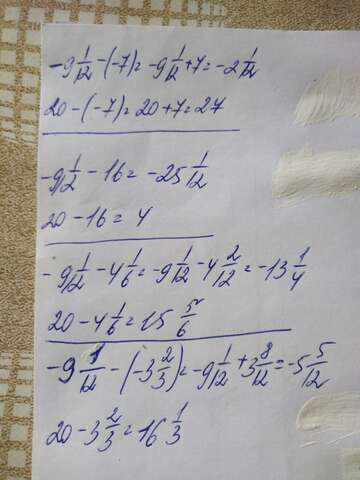 -9 1/12 - (-7) = -9 1/12 + 7 = -2 1/12
20 - (-7) = 20 + 7 = 27
-9 1/12 - 16 = -25 1/12
20 - 16 = 4
-9 1/12 - 4 1/6 = -9 1/12 - 4 2/12 = -13 1/4
20 - 4 1/6 = 15 5/6
-9 1/12 - (-3 2/3) = -9 1/12 + 3 8/12 = -5 5/12
20 - 3 2/3 = 16 1/3